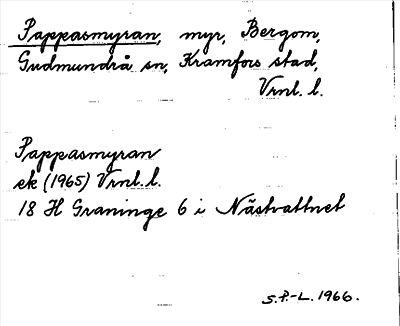 Pappasmyran, myr, Bergom,
Gudmundrå sn, Kramfors stad,
Vrnl. l.
Pappasmyran
ek (1965) Vrnl. l.
18 H Graninge 6 i Nästvattnet
S.P.-L. 1966.